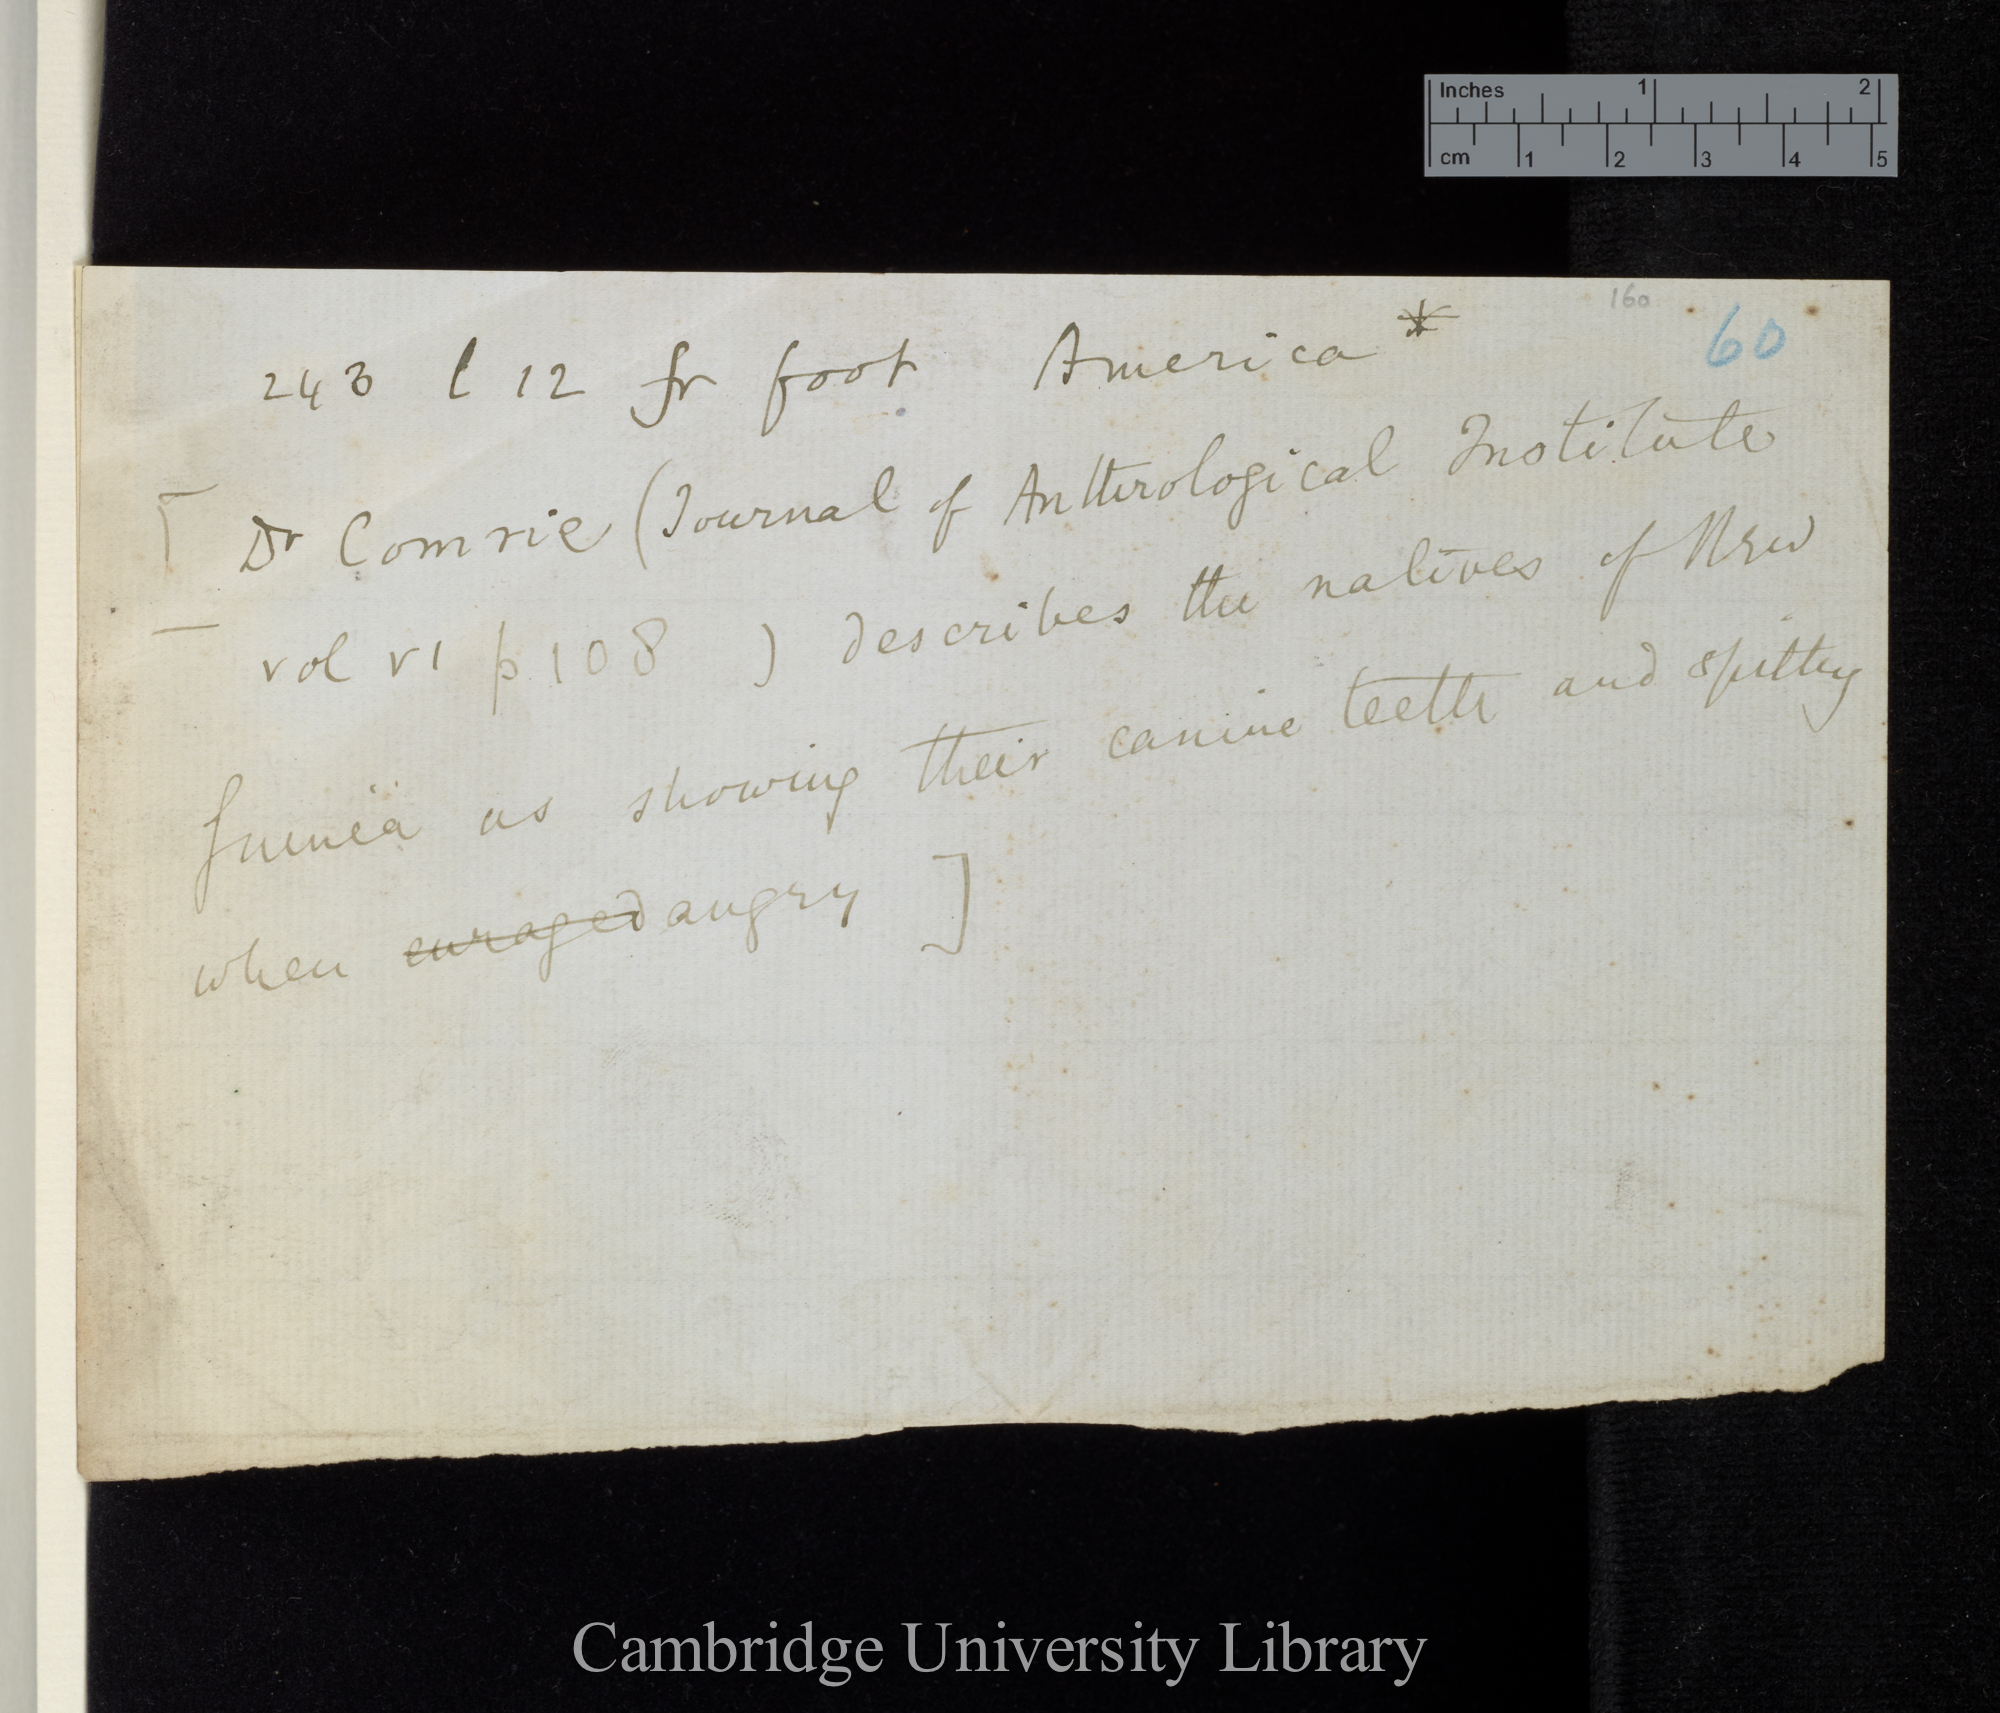 Inches 1 2
cm 1 2 3 4 5
160
60
243 l 12 fr foot America *
[ Dr Comrie (Journal of Anthrological Institute
vol VI p 108 ) describes the natives of New
Guinea as showing their canine teeth and spitting
when enraged angry ]
Cambridge University Library